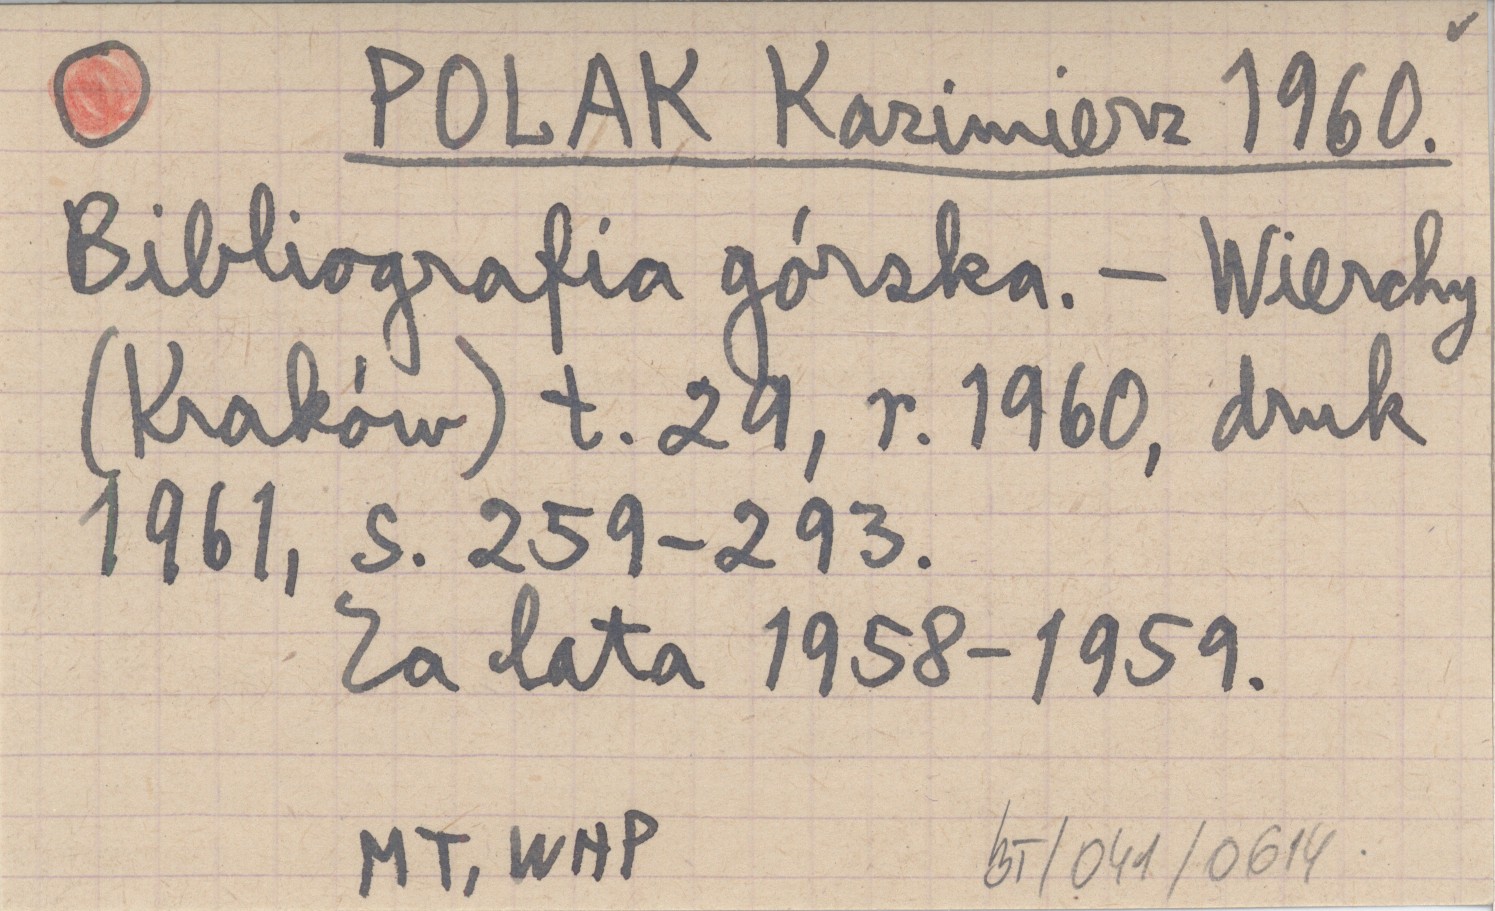 POLAK Kazimierz 1960.
Bibliografia górska. – Wierchy
(Kraków) t. 29, r. 1960, druk
1961, s. 259-293.
Za lata 1958-1959.
MT, WHP
BT/041/0614